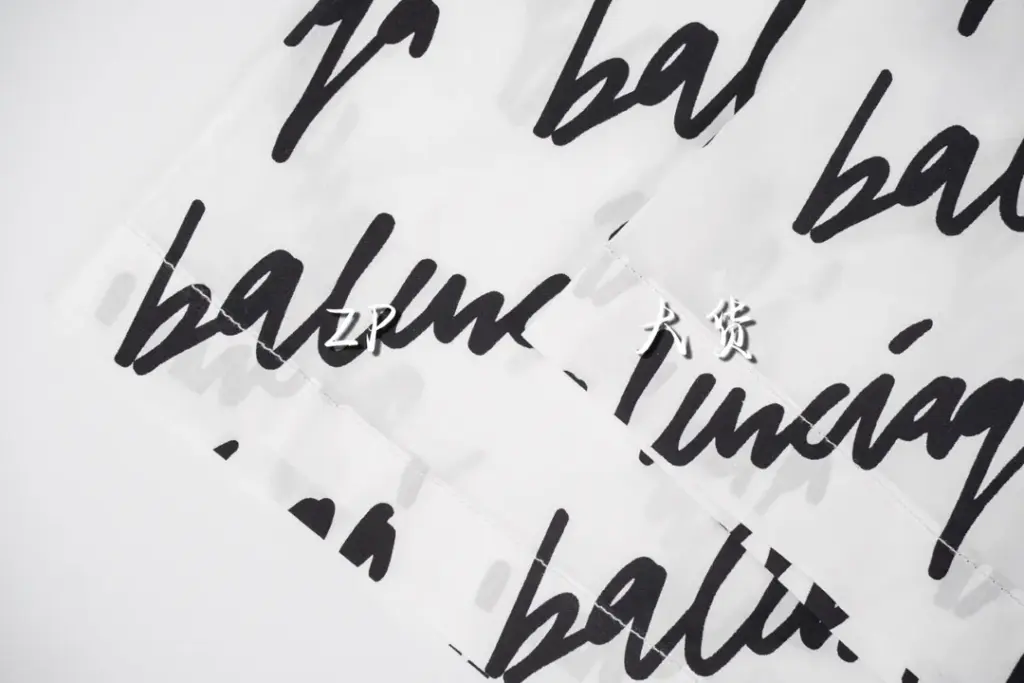 ga bal
bal
balenc
ZP 大货
enciag
bale